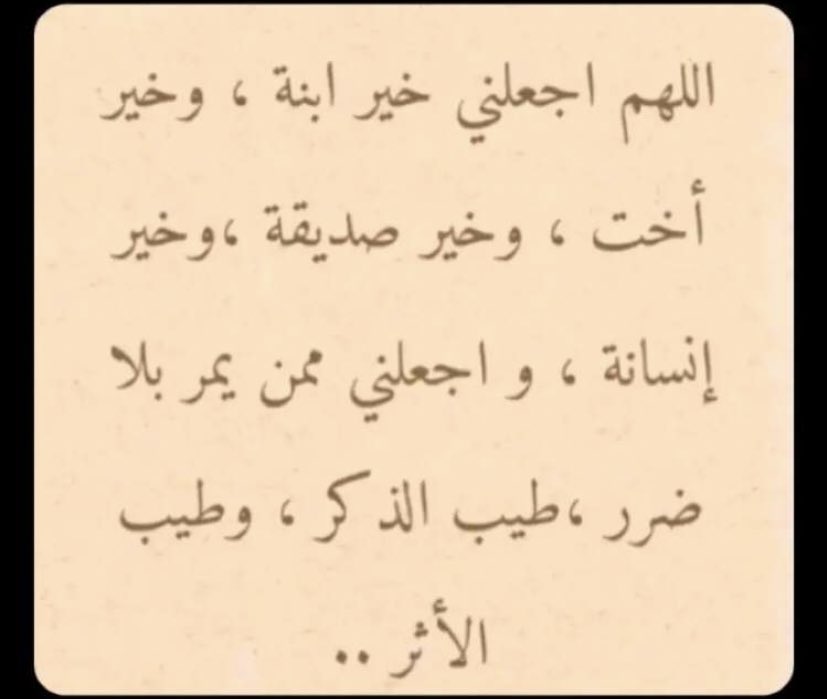 اللهم اجعلني خير ابنة ، وخير
أخت ، وخير صديقة ،وخير
إنسانة ، و اجعلني ممن يمر بلا
ضرر ،طيب الذكر ، وطيب
الأثر ..